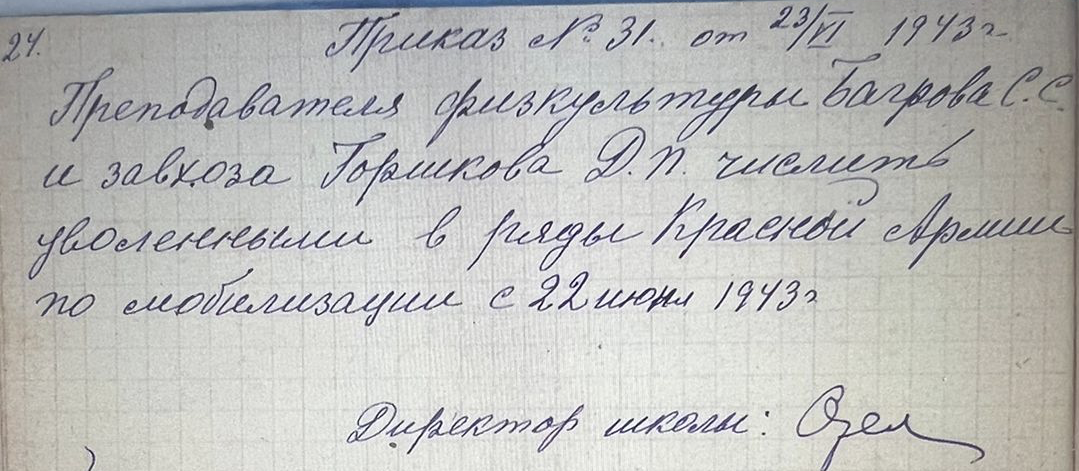 24. Приказ № 31. от 23/VI 1943 г.
Преподавателя физкультуры Багрова С.С.
и завхоза Горшкова Д.П. числить
уволенными в ряды Красной Армии
по мобилизации с 22 июня 1943 г
Директор школы: